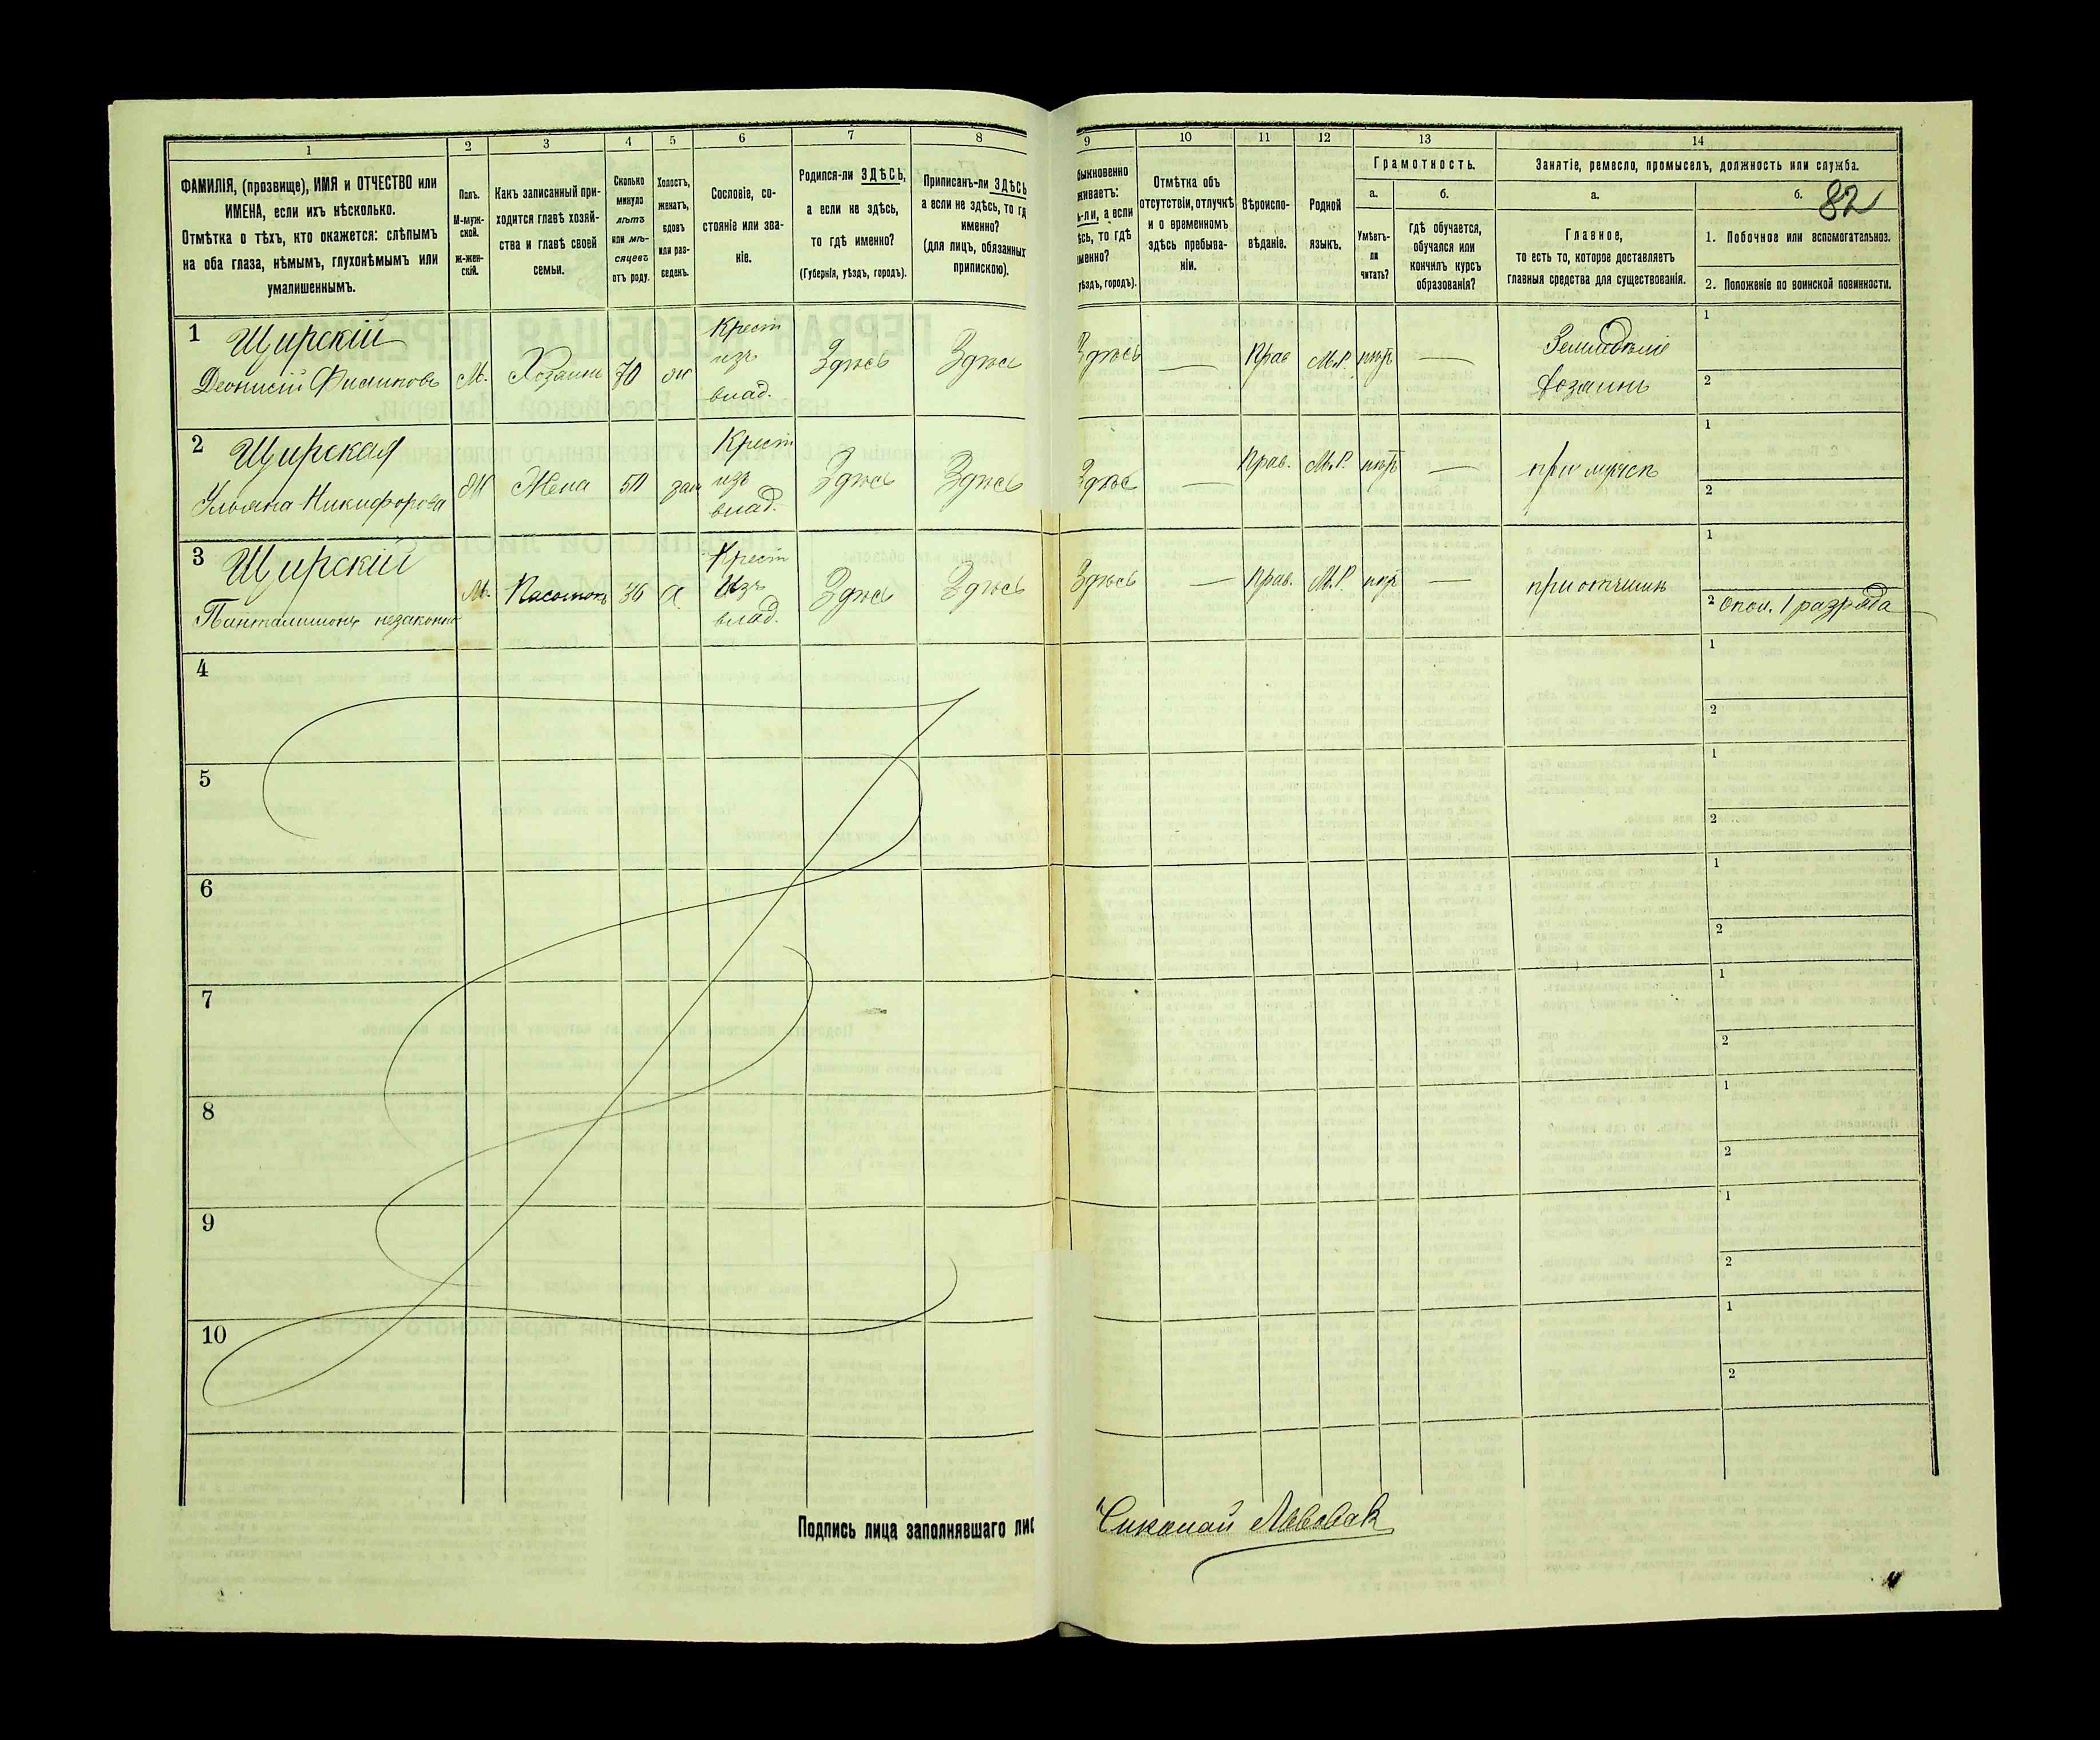 1 2 3 4 5 6 7 8 9 10 11 12 13 14
ФАМИЛІЯ, (прозвище), ИМЯ и ОТЧЕСТВО или
ИМЕНА, если ихъ нѣсколько.
Отмѣтка о тѣхъ, кто окажется: слѣпымъ
на оба глаза, нѣмымъ, глухонѣмымъ или
умалишеннымъ.
Полъ.
М-муж-
ской.
ж-жен-
скій.
Какъ записанный при-
ходится главѣ хозяй-
ства и главѣ своей
семьи.
Сколько
минуло
лѣтъ
или мѣ-
сяцевъ
отъ роду.
Холостъ,
женатъ,
вдовъ
или раз-
веденъ.
Сословіе, со-
стояніе или зва-
ніе.
Родился-ли ЗДѢСЬ,
а если не здѣсь,
то гдѣ именно?
(Губернія, уѣздъ, городъ).
Приписанъ-ли ЗДѢСЬ
а если не здѣсь, то гд
именно?
(для лицъ, обязанныхъ
припискою).
быкновенно
живаетъ:
ь-ли, а если
ѣсь, то гдѣ
менно?
уѣздъ, городъ).
Отмѣтка объ
отсутствіи, отлучкѣ
и о временномъ
здѣсь пребыва-
ніи.
Вѣроиспо-
вѣданіе.
Родной
языкъ.
Грамотность.
а.
Умѣетъ-
ли
читать?
б.
гдѣ обучается,
обучался или
кончилъ курсъ
образованія?
Занятіе, ремесло, промыселъ, должность или служба.
а.
Главное,
то есть то, которое доставляетъ
главныя средства для существованія.
б.
82
1. Побочное или вспомогательноэ.
2. Положеніе по воинской повинности.
1 Щирскій
Деонисій Филиповъ
М.
Хозаинъ
70
жн
Крест
изъ
влад.
Здѣсь
Здѣсь
Здѣсь
—
Прав
М.Р.
нѣтъ
—
Земледѣліе
хозаинъ
1
2
2 Щирская
Ульяна Никифорова
Ж
Жена
50
зам
Крест
изъ
влад.
Здѣсь
Здѣсь
Здѣсь
—
Прав.
М.Р.
нѣтъ
—
при мужѣ
1
2
3 Щирскій
Панталимонъ незаконно
М.
Пасынокъ
36
х
Крест
Изъ
влад.
Здѣсь
Здѣсь
Здѣсь
—
Прав.
М.Р.
нѣтъ
—
при отчимѣ
1
2 Опол. 1 разряда
4
1
2
5
1
2
6
1
2
7
1
2
8
1
2
9
1
2
10
1
2
Подпись лица заполнявшаго лис